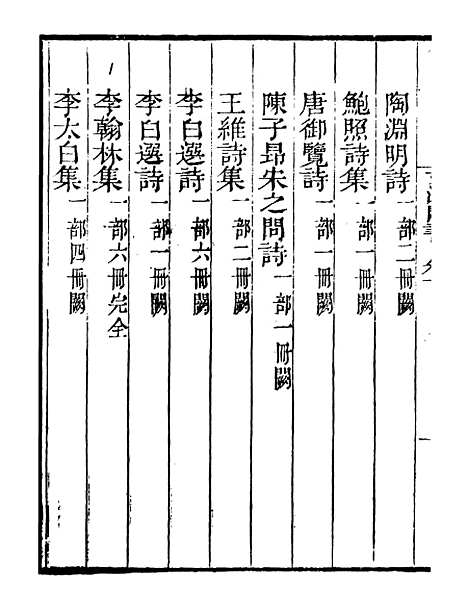 陶淵明詩一部二冊闕
鮑照詩集一部一冊闕
唐御覽詩一部一冊闕
陳子昂朱之問詩一部一冊闕
王維詩集一部二冊闕
李白選詩一部六冊闕
李白選詩一部一冊闕
李翰林集一部六冊完全
李太白集一部四冊闕